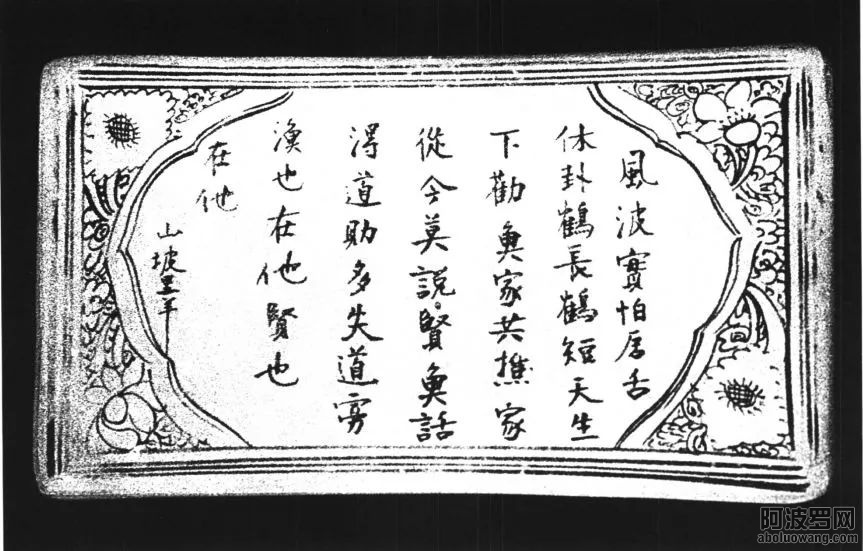 風波實怕唇舌
休卦鶴長鶴短天生
下勸奐家共樵家
從今莫說賢奐話
淂道助多失道寡
渙也在他賢也
在他
山坡里羊
阿波罗网
aboluowang.com